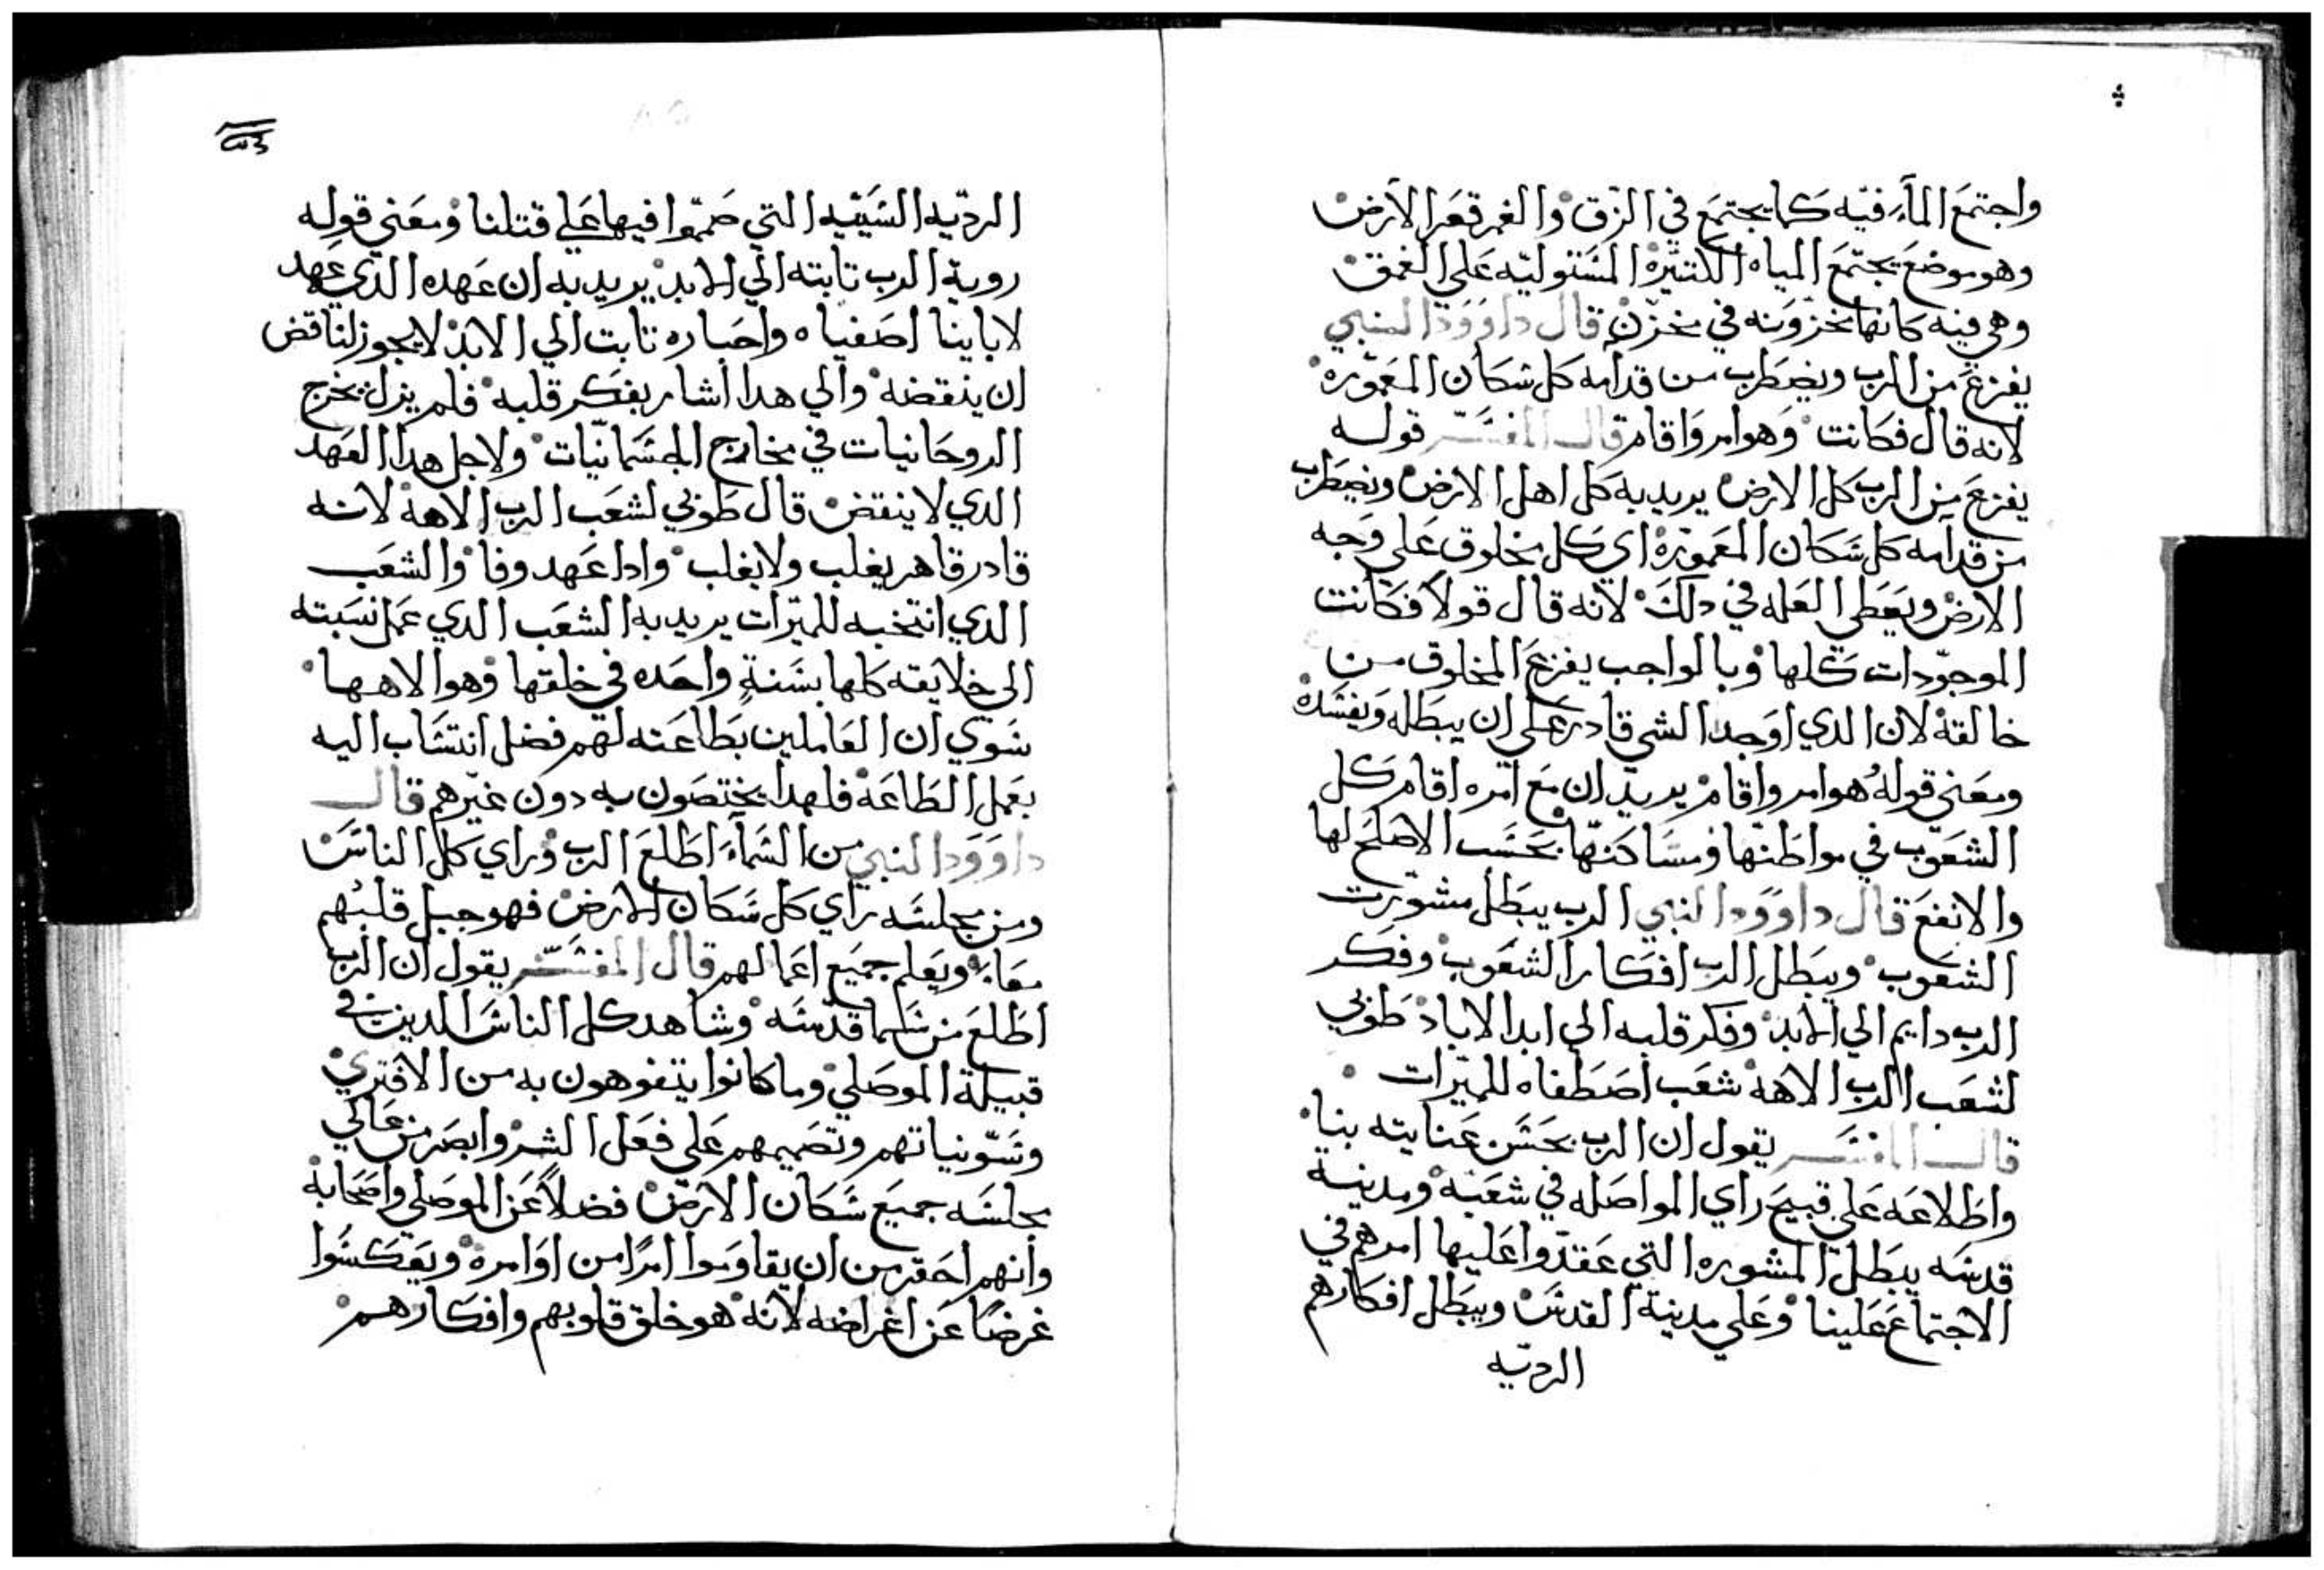 واجتمع المآء فيه كما يجتمع في الزق والغمر قعر الارض
وهو موضع تجتمع المياه الكتيره المستوليه على الغمق
وهي فيه كانها مخزونه في مخزن قال داوود النبي
يفزع من الرب ويضطرب من قدامه كل سكان المعموره
لانه قال فكانت وهو امر واقام قال المفسر قوله
يفزع من الرب كل الارض يريد به كل اهل الارض ويضطرب
من قدامه كل سكان المعموره اي كل مخلوق على وجه
الارض ويعطي العله في دلك لانه قال قولاً فكانت
الموجودات كلها وبالواجب يفزع المخلوق من
خالقه لان الدي اوجد الشي قادر على ان يبطله ويفسده
ومعني قوله هو امر واقام يريد ان مع امره اقام كل
الشعوب في مواطنها ومساكنها بحسب الاصلح لها
والانفع قال داوود النبي الرب يبطل مشورت
الشعوب ويبطل الرب افكار الشعوب وفكر
الرب دايم الي الابد وفكر قلبه الي ابد الاباد طوبي
لشعب الرب الاهه شعب اصطفاه للميرات
قال المفسر يقول ان الرب بحسن عنايته بنا
واطلاعه على قبيح راي المواصله في شعبه ومدينة
قدسه يبطل المشوره التي عقدوا عليها امرهم في
الاجتماع علينا وعلي مدينة القدس ويبطل افكارهم
الرديه
الرديه السييه التي صمموا فيها علي قتلنا ومعني قوله
روية الرب تابته الي الابد يريد به ان عهده الدي عهد
لاباينا اصفياه واحباره تابت الي الابد لا يجوز لناقض
ان ينقضه والي هدا اشار بفكر قلبه فلم يزل يخرج
الروحانيات في مخارج الجسمانيات ولاجل هدا العهد
الدي لا ينقض قال طوبي لشعب الرب الاهه لانه
قادر قاهر يغلب ولا يغلب وادا عهد وفا والشعب
الدي انتخبه للميرات يريد به الشعب الدي عمل نسبته
الى خلايقه كلها بسنة واحده في خلقها وهو الاهها
سوي ان العاملين بطاعته لهم فضل انتساب اليه
بعمل الطاعه فلهدا يختصون به دون غيرهم قال
داوود النبي من السمآء اطلع الرب وراي كل الناس
ومن مجلسه راي كل سكان الارض فهو جبل قلبهم
معاً ويعلم جميع اعمالهم قال المفسر يقول ان الرب
اطلع من سما قدسه وشاهد كل الناس الدين في
قبيلة الموصلي وما كانوا يتفوهون به من الافتري
وسو نياتهم وتصميمهم على فعل الشر وابصر من عالي
مجلسه جميع سكان الارض فضلاً عن الموصلي واصحابه
وانهم احقر من ان يقاوموا امراً من اوامره ويعكسوا
غرضاً عن اغراضه لانه هو خلق قلوبهم وافكارهم